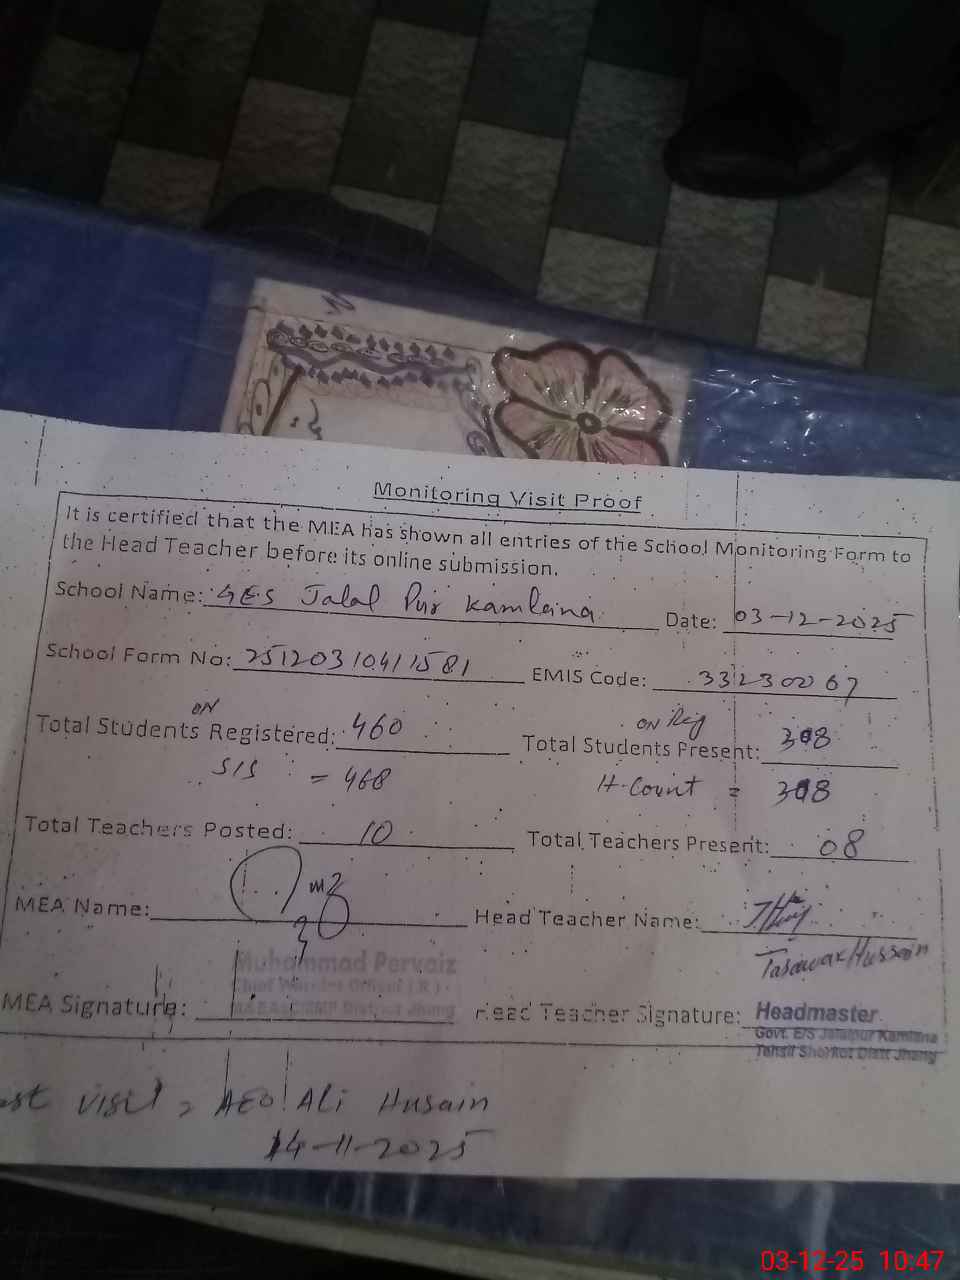 Monitoring Visit Proof
It is certified that the MEA has shown all entries of the School Monitoring Form to
the Head Teacher before its online submission.
School Name: GES Jalal Pur Kamlana Date: 03-12-2025
School Form No: 25120310411581 EMIS Code: 33230067
ON ON Reg
Total Students Registered: 460 Total Students Present: 308
SIS = 468 H-Count = 308
Total Teachers Posted: 10 Total Teachers Present: 08
MEA Name: Head Teacher Name:
Tasawar Hussain
Muhammad Pervaiz
MEA Signature: Head Teacher Signature: Headmaster
District Jhang Govt. E/S Jalalpur Kamlana
Tehsil Shorkot Distt Jhang
visit = AEO Ali Husain
14-11-2025
03-12-25 10:47